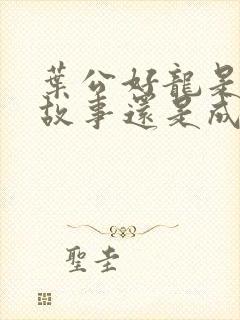 葉公好龍是
故事還是成
聖圭